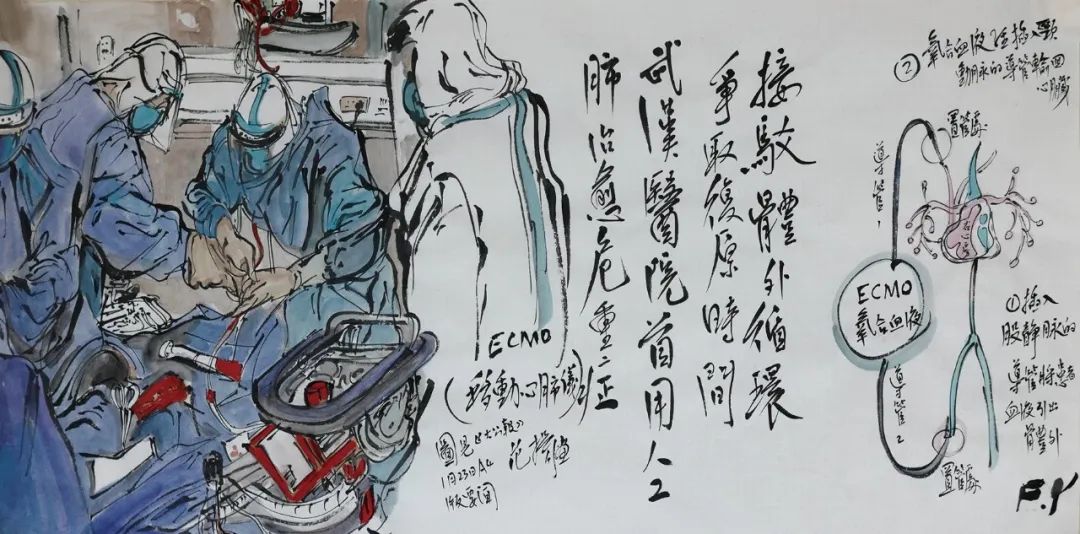 ②氧合血液经插入頸
動脉的導管輸回
心臟
置管處
導管1
ECMO
氧合血液
導管2
置管處
①插入
股静脉的
導管將患者
血液引出
體外
F.Y
接駁體外循環
爭取復原時間
武漢醫院首用人工
肺治愈危重症
ECMO
(移動心肺儀)
圖見《大公報》
1月23日A4
版要聞